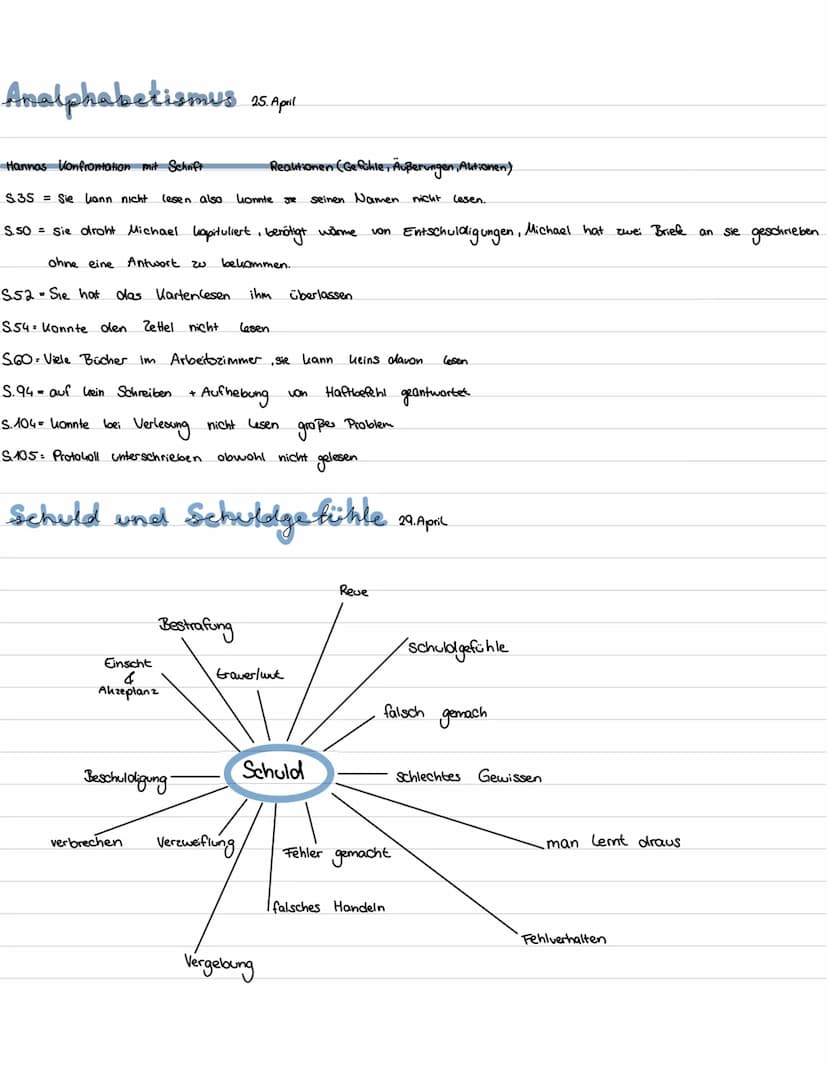 Analphabetismus 25. April
Hannas Konfrontation mit Schrift Reaktionen (Gefühle, Äußerungen, Aktionen)
S.35 = Sie kann nicht lesen also konnte sie seinen Namen nicht lesen.
S.50 = Sie droht Michael kapituliert, benötigt wärme von Entschuldigungen, Michael hat zwei Briefe an sie geschrieben
ohne eine Antwort zu bekommen.
S.52 = Sie hat das Kartenlesen ihm überlassen
S.54 = Konnte den Zettel nicht lesen
S.60 = Viele Bücher im Arbeitszimmer, sie kann keins davon lesen
S.94 = auf kein Schreiben + Aufhebung von Haftbefehl geantwortet
S.104 = konnte bei Verlesung nicht lesen großes Problem
S.105 = Protokoll unterschrieben obwohl nicht gelesen
Schuld und Schuldgefühle 29. April
Reue
Bestrafung
schuldgefühle
Einscht
&
Akzeptanz
trauer/wut
falsch gemach
Schuld
Beschuldigung
schlechtes Gewissen
verbrechen
Verzweiflung
Fehler gemacht
man lernt draus
falsches Handeln
Fehlverhalten
Vergebung